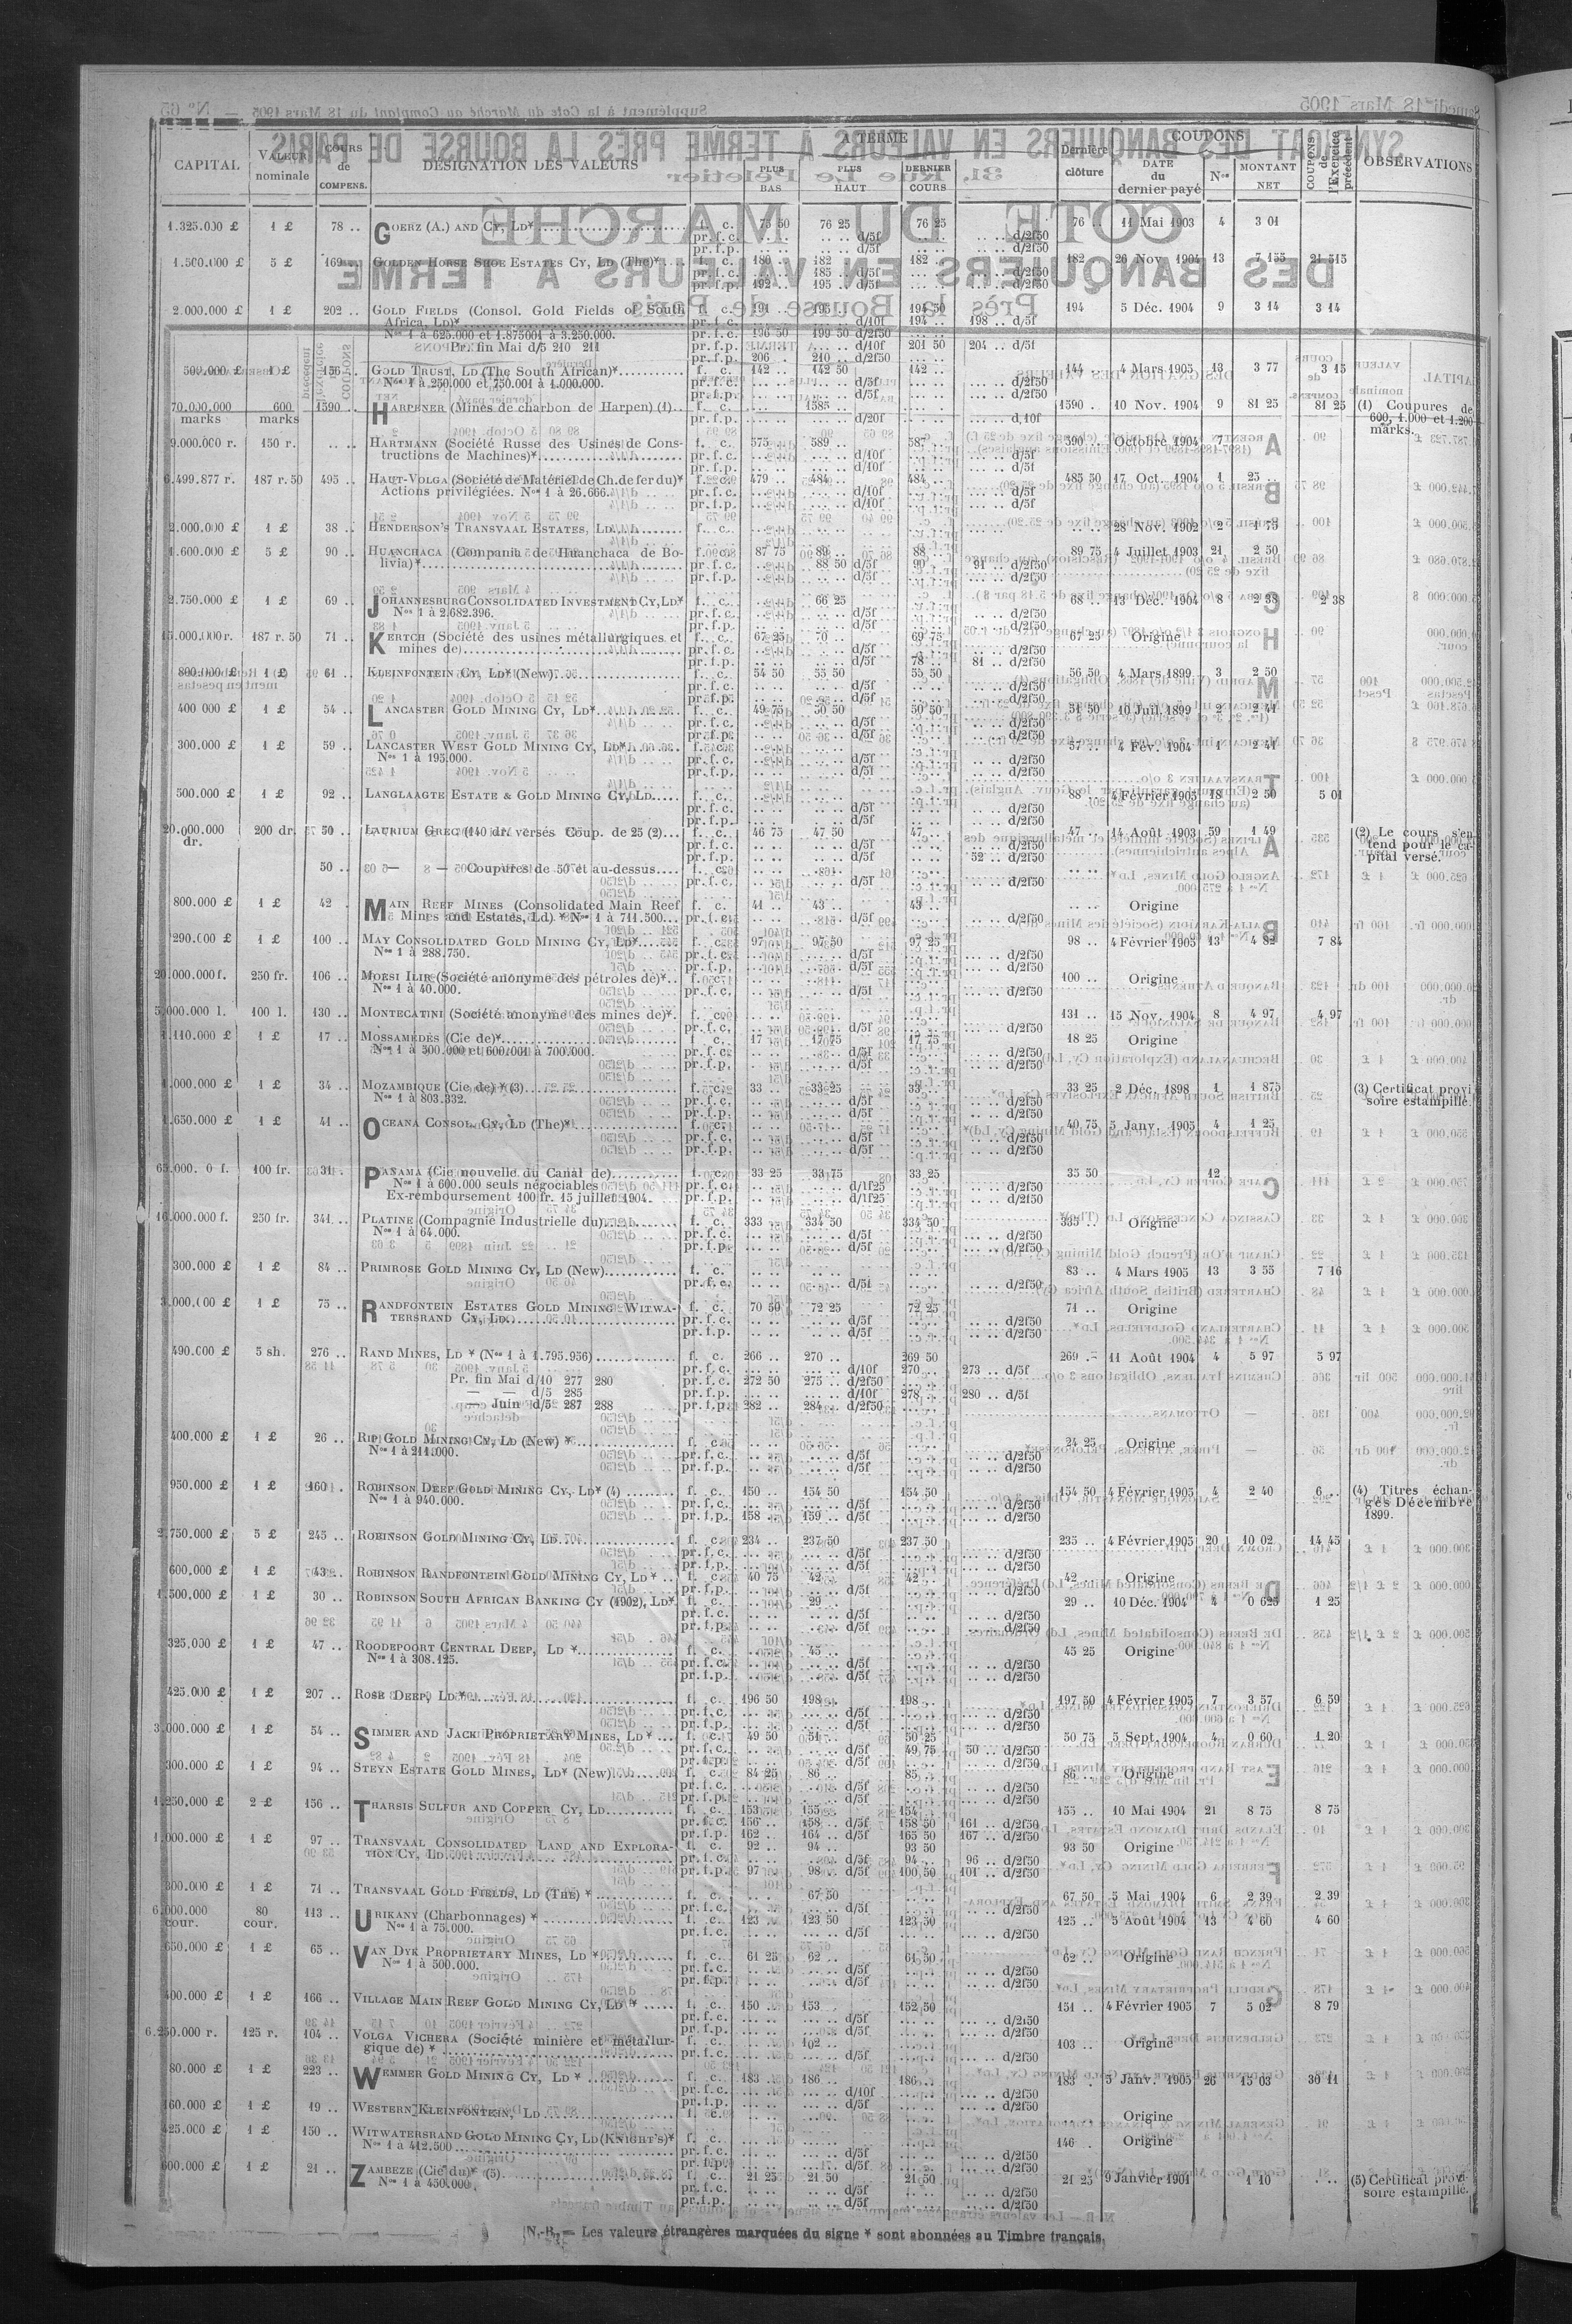 CAPITAL VALEUR nominale COURS de COMPENS. DÉSIGNATION DES VALEURS A TERME PLUS BAS PLUS HAUT DERNIER COURS Dernière clôture COUPONS DATE du dernier payé Nos MONTANT NET COUPONS de l'Exercice précédent OBSERVATIONS
1.325.000 £ 1 £ 78 .. GOERZ (A.) AND CY, LD* f. c. 75 50 76 25 76 25 76 .. 11 Mai 1903 4 3 01
pr. f. c. .. .. .. .. d/5f .. .. .. .. d/2f50
pr. f. p. .. .. .. .. d/5f .. .. .. .. d/2f50
1.500.000 £ 5 £ 169 .. GOLDEN HORSE SHOE ESTATES CY, LD (The)* f. c. 180 .. 182 .. 182 .. 182 26 Nov. 1904 13 7 155 21 515
pr. f. c. .. .. 185 .. d/5f .. .. .. .. d/2f50
pr. f. p. 192 .. 195 .. d/5f .. .. .. .. d/2f50
2.000.000 £ 1 £ 202 .. GOLD FIELDS (Consol. Gold Fields of South f. c. 191 .. 195 .. 194 50 194 5 Déc. 1904 9 3 14 3 14
Africa, LD)* pr. f. c. .. .. .. .. d/10f 194 .. 198 .. d/5f
Nos 1 à 625.000 et 1.875001 à 3.250.000. pr. f. c. 196 50 199 50 d/2f50 .. ..
Pr. fin Mai d/5 210 211 pr. f. p. .. .. .. .. d/10f 201 50 204 .. d/5f
pr. f. p. 206 . 210 .. d/2f50 .. ..
500.000 £ 1 £ 156 .. GOLD TRUST, LD (The South African)* f. c. 142 .. 142 50 142 .. 144 .. 4 Mars 1905 13 3 77 3 15
Nos 1 à 250.000 et 750.001 à 1.000.000. pr. f. c. .. .. .. .. d/5f .. .. .. .. d/2f50
pr. f. p. .. .. .. .. d/5f .. .. .. .. d/2f50
70.000.000 marks 600 marks 1590 .. HARPENER (Mines de charbon de Harpen) (1).. f. c. .. .. 1585 .. .. .. 1590 . 10 Nov. 1904 9 81 25 81 25 (1) Coupures de 600, 1.000 et 1.200 marks.
pr. f. p. .. .. .. .. d/20f .. .. .. .. d/10f
9.000.000 r. 150 r. .. .. HARTMANN (Société Russe des Usines de Cons- f. c. 575 .. 589 .. 587 590 .. Octobre 1904 7
tructions de Machines)* pr. f. c. .. .. .. .. d/10f .. .. .. .. d/5f
pr. f. p. .. .. .. .. d/10f .. .. .. .. d/5f
6.499.877 r. 187 r. 50 495 .. HAUT-VOLGA (Société de Matériel de Ch. de fer du)* f. c. 479 .. 484 .. 484 485 50 17 Oct. 1904 1 25 ..
Actions privilégiées. Nos 1 à 26.666. pr. f. c. .. .. .. .. d/10f .. .. .. .. d/5f
pr. f. p. .. .. .. .. d/10f .. .. .. .. d/5f
2.000.000 £ 1 £ 38 .. HENDERSON'S TRANSVAAL ESTATES, LD f. c. .. .. .. .. .. .. .. .. 28 Nov. 1902 2 1 75
1.600.000 £ 5 £ 90 .. HUANCHACA (Compania de Huanchaca de Bo- f. c. 87 75 89 .. 88 .. 89 75 4 Juillet 1903 21 2 50
livia)* pr. f. c. .. .. 88 50 d/5f 90 .. 91 .. d/2f50
pr. f. p. .. .. .. .. d/5f .. .. .. .. d/2f50
2.750.000 £ 1 £ 69 .. JOHANNESBURG CONSOLIDATED INVESTMENT CY, LD* f. c. .. .. 66 25 .. .. 68 .. 13 Déc. 1904 8 2 38 2 38
Nos 1 à 2.682.396. pr. f. c. .. .. .. .. d/5f .. .. .. .. d/2f50
pr. f. p. .. .. .. .. d/5f .. .. .. .. d/2f50
15.000.000 r. 187 r. 50 71 .. KERTCH (Société des usines métallurgiques et f. c. 67 25 70 .. 69 75 67 25 Origine
mines de) pr. f. c. .. .. .. .. d/5f .. .. .. .. d/2f50
pr. f. p. .. .. .. .. d/5f 78 .. 81 .. d/2f50
800.000 £ 1 £ 61 KLEINFONTEIN CY, LD* (New) f. c. 54 50 55 50 55 50 56 50 4 Mars 1899 3 2 50
pr. f. c. .. .. .. .. d/5f .. .. .. .. d/2f50
pr. f. p. .. .. .. .. d/5f .. .. .. .. d/2f50
400 000 £ 1 £ 54 .. LANCASTER GOLD MINING CY, LD* f. c. 49 75 50 50 50 50 51 50 10 Juil. 1899 2 2 41
pr. f. c. .. .. .. .. d/5f .. .. .. .. d/2f50
pr. f. p. .. .. .. .. d/5f .. .. .. .. d/2f50
300.000 £ 1 £ 59 .. LANCASTER WEST GOLD MINING CY, LD* f. c. .. .. .. .. .. .. 57 .. 4 Fév. 1904 1 2 41
Nos 1 à 195.000. pr. f. c. .. .. .. .. d/5f .. .. .. .. d/2f50
pr. f. p. .. .. .. .. d/5f .. .. .. .. d/2f50
500.000 £ 1 £ 92 .. LANGLAAGTE ESTATE & GOLD MINING CY, LD f. c. .. .. .. .. .. .. 88 .. 4 Février 1905 18 2 50 5 01
pr. f. c. .. .. .. .. d/5f .. .. .. .. d/2f50
pr. f. p. .. .. .. .. d/5f .. .. .. .. d/2f50
20.000.000 dr. 200 dr. 50 .. LAURIUM GREC (140 dr. versés Coup. de 25 (2) f. c. 46 75 47 50 47 .. 47 .. 14 Août 1903 59 1 49 (2) Le cours s'entend pour le capital versé.
pr. f. c. .. .. .. .. d/5f .. .. .. .. d/2f50
pr. f. p. .. .. .. .. d/5f .. .. 52 .. d/2f50
50 .. — — Coupures de 50 et au-dessus f. c. .. .. .. .. .. ..
pr. f. c. .. .. .. .. d/5f .. .. .. .. d/2f50
800.000 £ 1 £ 42 . MAIN REEF MINES (Consolidated Main Reef f. c. 41 .. 43 .. 43 .. .. .. Origine
Mines and Estates, Ld) * Nos 1 à 711.500 pr. f. c. .. .. .. .. d/5f .. .. .. .. d/2f50
290.000 £ 1 £ 100 . MAY CONSOLIDATED GOLD MINING CY, LD* f. c. 97 .. 97 50 97 25 98 .. 4 Février 1905 13 4 82 7 84
Nos 1 à 288.750. pr. f. c. .. .. .. .. d/5f .. .. .. .. d/2f50
pr. f. p. .. .. .. .. d/5f .. .. .. .. d/2f50
20.000.000 f. 250 fr. 106 .. MOESI ILIR (Société anonyme des pétroles de)* f. c. .. .. .. .. .. .. 100 .. Origine
Nos 1 à 40.000. pr. f. c. .. .. .. .. d/5f .. .. .. .. d/2f50
5.000.000 l. 100 l. 130 .. MONTECATINI (Société anonyme des mines de)* f. c. .. .. .. .. .. .. 131 .. 15 Nov. 1904 8 4 97 4 97
pr. f. c. .. .. .. .. d/5f .. .. .. .. d/2f50
1.110.000 £ 1 £ 17 .. MOSSAMÉDÈS (Cie de)* f. c. 17 .. 17 75 17 75 18 25 Origine
Nos 1 à 500.000 et 600.001 à 700.000. pr. f. c. .. .. .. .. d/5f .. .. .. .. d/2f50
pr. f. p. .. .. .. .. d/5f .. .. .. .. d/2f50
1.000.000 £ 1 £ 34 .. MOZAMBIQUE (Cie de) * (3) f. c. 33 .. 33 25 33 .. 33 25 2 Déc. 1898 1 1 875 (3) Certificat provisoire estampillé.
Nos 1 à 803.332. pr. f. c. .. .. .. .. d/5f .. .. .. .. d/2f50
pr. f. p. .. .. .. .. d/5f .. .. .. .. d/2f50
1.650.000 £ 1 £ 41 .. OCEANA CONSOL. CY, LD (The)* f. c. .. .. .. .. .. .. 40 75 5 Janv. 1905 4 1 25
pr. f. c. .. .. .. .. d/5f .. .. .. .. d/2f50
pr. f. p. .. .. .. .. d/5f .. .. .. .. d/2f50
65.000. 0 f. 100 fr. 31 .. PANAMA (Cie nouvelle du Canal de) f. c. 33 25 33 75 33 25 35 50 12
Nos 1 à 600.000 seuls négociables pr. f. c. .. .. .. .. d/1f25 .. .. .. .. d/2f50
Ex-remboursement 100 fr. 15 juillet 1904. pr. f. p. .. .. .. .. d/1f25 .. .. .. .. d/2f50
16.000.000 f. 250 fr. 341 .. PLATINE (Compagnie Industrielle du) f. c. 333 .. 334 50 334 50 335 .. Origine
Nos 1 à 64.000. pr. f. c. .. .. .. .. d/5f .. .. .. .. d/2f50
pr. f. p. .. .. .. .. d/5f .. .. .. .. d/2f50
300.000 £ 1 £ 84 .. PRIMROSE GOLD MINING CY, LD (New) f. c. .. .. .. .. .. .. 83 .. 4 Mars 1905 13 3 55 7 16
pr. f. c. .. .. .. .. d/5f .. .. .. .. d/2f50
3.000.000 £ 1 £ 75 .. RANDFONTEIN ESTATES GOLD MINING WITWA- f. c. 70 50 72 25 72 25 71 .. Origine
TERSRAND CY, LD pr. f. c. .. .. .. .. d/5f .. .. .. .. d/2f50
pr. f. p. .. .. .. .. d/5f .. .. .. .. d/2f50
490.000 £ 5 sh. 276 .. RAND MINES, LD * (Nos 1 à 1.795.956) f. c. 266 .. 270 .. 269 50 269 .. 11 Août 1904 4 5 97 5 97
pr. f. c. .. .. .. .. d/10f 270 .. 273 .. d/5f
Pr. fin Mai d/10 277 280 pr. f. c. 272 50 275 .. d/2f50 .. ..
— — d/5 285 pr. f. p. .. .. .. .. d/10f 278 .. 280 .. d/5f
— Juin d/5 287 288 pr. f. p. 282 .. 284 .. d/2f50 .. ..
400.000 £ 1 £ 26 .. RIP GOLD MINING CY, LD (New) * f. c. .. .. .. .. .. .. 24 25 Origine
Nos 1 à 211.000. pr. f. c. .. .. .. .. d/5f .. .. .. .. d/2f50
pr. f. p. .. .. .. .. d/5f .. .. .. .. d/2f50
950.000 £ 1 £ 160 . ROBINSON DEEP GOLD MINING CY, LD* (4) f. c. 150 .. 154 50 154 50 154 50 4 Février 1905 4 2 40 6 .. (4) Titres échangés Décembre 1899.
Nos 1 à 940.000. pr. f. c. .. .. .. .. d/5f .. .. .. .. d/2f50
pr. f. p. 158 .. 159 .. d/5f .. .. .. .. d/2f50
2.750.000 £ 5 £ 245 .. ROBINSON GOLD MINING CY, LD f. c. 234 .. 237 50 237 50 235 .. 4 Février 1905 20 10 02 14 45
pr. f. c. .. .. .. .. d/5f .. .. .. .. d/2f50
pr. f. p. .. .. .. .. d/5f .. .. .. .. d/2f50
600,000 £ 1 £ 43 .. ROBINSON RANDFONTEIN GOLD MINING CY, LD * f. c. 40 75 42 .. 42 .. 42 .. Origine
pr. f. p. .. .. .. .. d/5f .. .. .. .. d/2f50
1.500,000 £ 1 £ 30 .. ROBINSON SOUTH AFRICAN BANKING CY (1902), LD* f. c. .. .. 29 .. .. .. 29 .. 10 Déc. 1904 4 0 625 1 25
pr. f. c. .. .. .. .. d/5f .. .. .. .. d/2f50
pr. f. p. .. .. .. .. d/5f .. .. .. .. d/2f50
325,000 £ 1 £ 47 .. ROODEPOORT CENTRAL DEEP, LD * f. c. .. .. 45 .. .. .. 45 25 Origine
Nos 1 à 308.125. pr. f. c. .. .. .. .. d/5f .. .. .. .. d/2f50
pr. f. p. .. .. .. .. d/5f .. .. .. .. d/2f50
425.000 £ 1 £ 207 .. ROSE DEEP, LD * f. c. 196 50 198 .. 198 .. 197 50 4 Février 1905 7 3 57 6 59
pr. f. c. .. .. .. .. d/5f .. .. .. .. d/2f50
pr. f. p. .. .. .. .. d/5f .. .. .. .. d/2f50
3.000.000 £ 1 £ 54 .. SIMMER AND JACK PROPRIETARY MINES, LD * f. c. 49 50 51 .. 50 25 50 75 5 Sept. 1904 4 0 60 1 20
pr. f. c. .. .. .. .. d/5f 49 75 50 .. d/2f50
pr. f. p. .. .. .. .. d/5f .. .. .. .. d/2f50
300.000 £ 1 £ 94 .. STEYN ESTATE GOLD MINES, LD* (New) f. c. 84 25 86 .. 85 .. 86 .. Origine
pr. f. c. .. .. .. .. d/5f .. .. .. .. d/2f50
pr. f. p. .. .. .. .. d/5f .. .. .. .. d/2f50
1.250.000 £ 2 £ 156 .. THARSIS SULFUR AND COPPER CY, LD f. c. 153 .. 155 .. 154 .. 155 .. 10 Mai 1904 21 8 75 8 75
pr. f. c. 156 .. 158 .. d/5f 158 50 161 .. d/2f50
pr. f. p. 162 .. 164 .. d/5f 165 50 167 .. d/2f50
1.000.000 £ 1 £ 97 .. TRANSVAAL CONSOLIDATED LAND AND EXPLORA- f. c. 92 .. 94 .. 93 50 93 50 Origine
TION CY, LD pr. f. c. .. .. .. .. d/5f 94 .. 96 .. d/2f50
pr. f. p. 97 .. 98 .. d/5f 100,50 101 .. d/2f50
300.000 £ 1 £ 71 .. TRANSVAAL GOLD FIELDS, LD (THE) * f. c. .. .. 67 50 .. .. 67 50 5 Mai 1904 6 2 39 2 39
pr. f. c. .. .. .. .. d/5f .. .. .. .. d/2f50
6.000.000 cour. 80 cour. 113 .. URIKANY (Charbonnages) * f. c. 123 .. 123 50 123 50 125 .. 5 Août 1904 13 4 60 4 60
Nos 1 à 75.000. pr. f. c. .. .. .. .. d/5f .. .. .. .. d/2f50
650.000 £ 1 £ 65 .. VAN DYK PROPRIETARY MINES, LD * f. c. 61 25 62 .. 61 50 62 .. Origine
Nos 1 à 500.000. pr. f. c. .. .. .. .. d/5f .. .. .. .. d/2f50
pr. f. p. .. .. .. .. d/5f .. .. .. .. d/2f50
400.000 £ 1 £ 166 .. VILLAGE MAIN REEF GOLD MINING CY, LD * f. c. 150 .. 153 .. 152 50 151 .. 4 Février 1905 7 5 02 8 79
pr. f. c. .. .. .. .. d/5f .. .. .. .. d/2f50
pr. f. p. .. .. .. .. d/5f .. .. .. .. d/2f50
6.250.000 r. 125 r. 104 .. VOLGA VICHERA (Société minière et métallur- f. c. .. .. 102 .. .. .. 103 .. Origine
gique de) * pr. f. c. .. .. .. .. d/5f .. .. .. .. d/2f50
80.000 £ 1 £ 223 .. WEMMER GOLD MINING CY, LD * f. c. 183 .. 186 .. 186 .. 183 . 5 Janv. 1905 26 15 03 30 11
pr. f. c. .. .. .. .. d/10f .. .. .. .. d/2f50
pr. f. p. .. .. .. .. d/5f .. .. .. .. d/2f50
160.000 £ 1 £ 19 .. WESTERN KLEINFONTEIN, LD f. c. .. .. .. .. .. .. .. .. Origine
425.000 £ 1 £ 150 .. WITWATERSRAND GOLD MINING CY, LD (KNIGHT'S)* f. c. .. .. .. .. .. .. 146 . Origine
Nos 1 à 412.500 pr. f. c. .. .. .. .. d/5f .. .. .. .. d/2f50
pr. f. p. .. .. .. .. d/5f .. .. .. .. d/2f50
600.000 £ 1 £ 21 .. ZAMBÈZE (Cie du)* (5) f. c. 21 25 21 50 21 50 21 25 9 Janvier 1901 1 10 . .. (5) Certificat provisoire estampillé.
Nos 1 à 450.000. pr. f. c. .. .. .. .. d/5f .. .. .. .. d/2f50
pr. f. p. .. .. .. .. d/5f .. .. .. .. d/2f50
N.-B. — Les valeurs étrangères marquées du signe * sont abonnées au Timbre français.